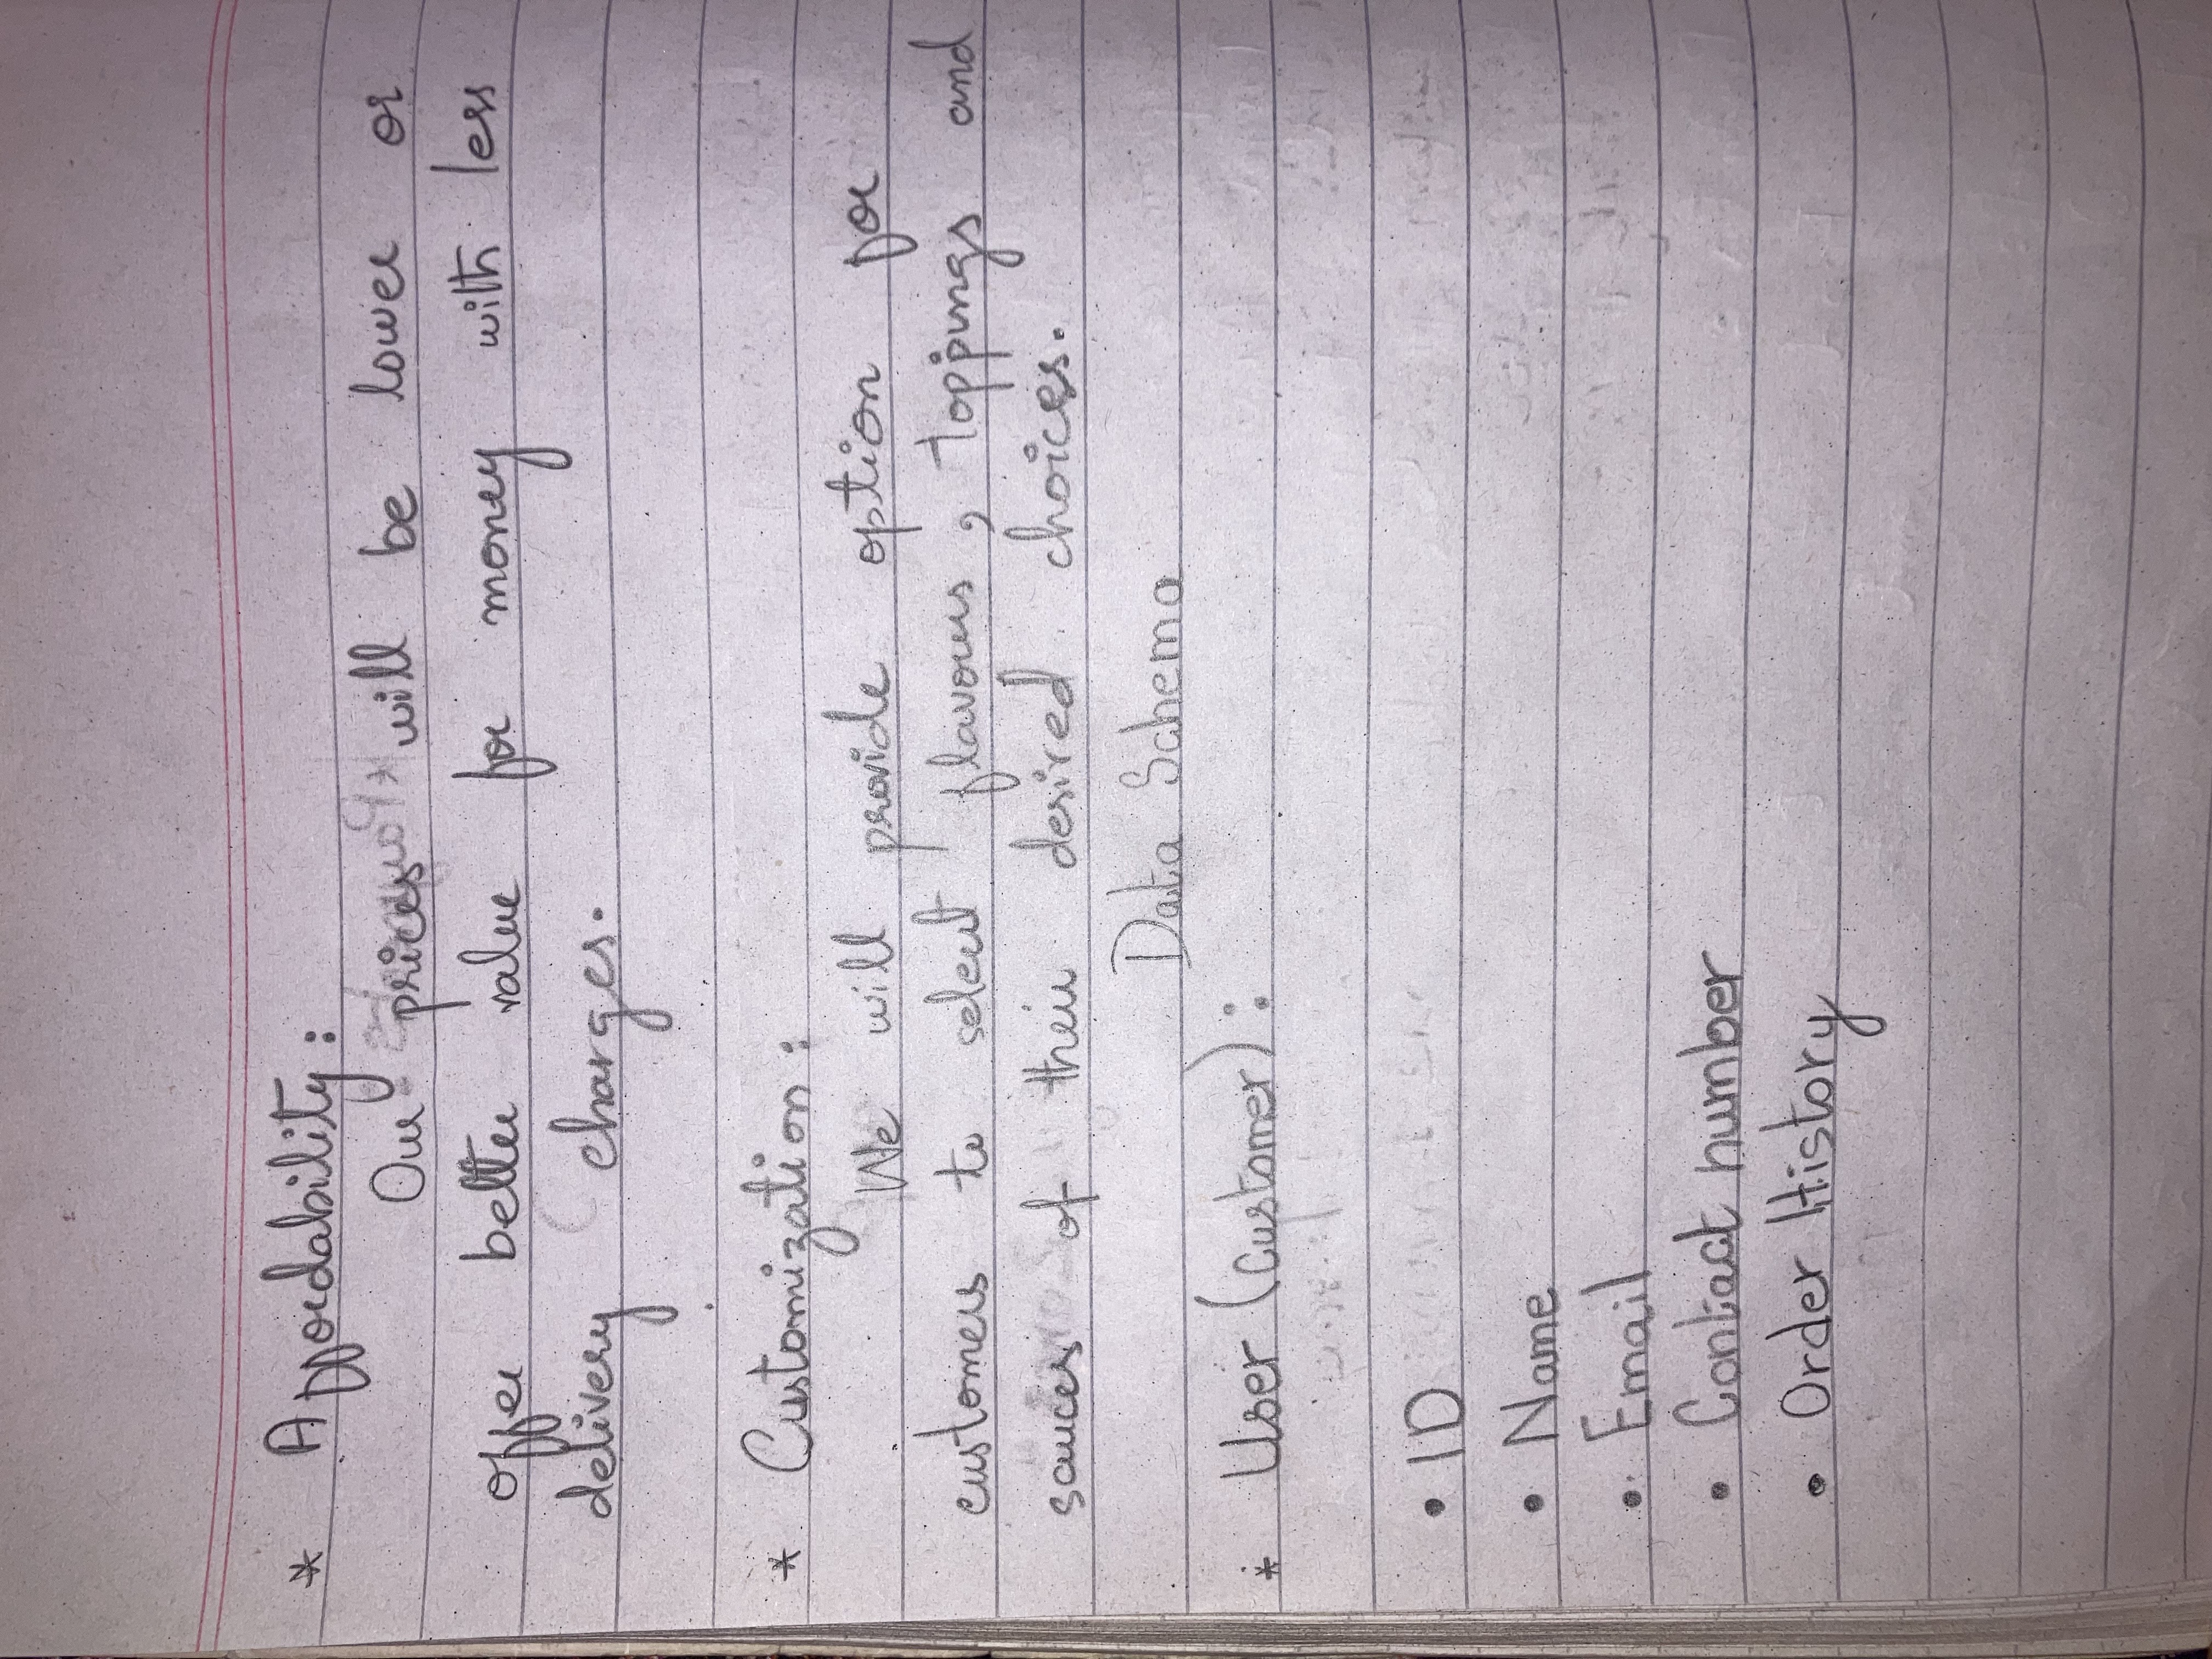 * Affordability:
Our prices will be lower or
offer better value for money with less
delivery charges.
* Customization:
We will provide option for
customers to select flavours, toppings and
sauces of their desired choices.
Data Schema
* User (Customer):
• ID
• Name
• Email
• Contact number
• Order History